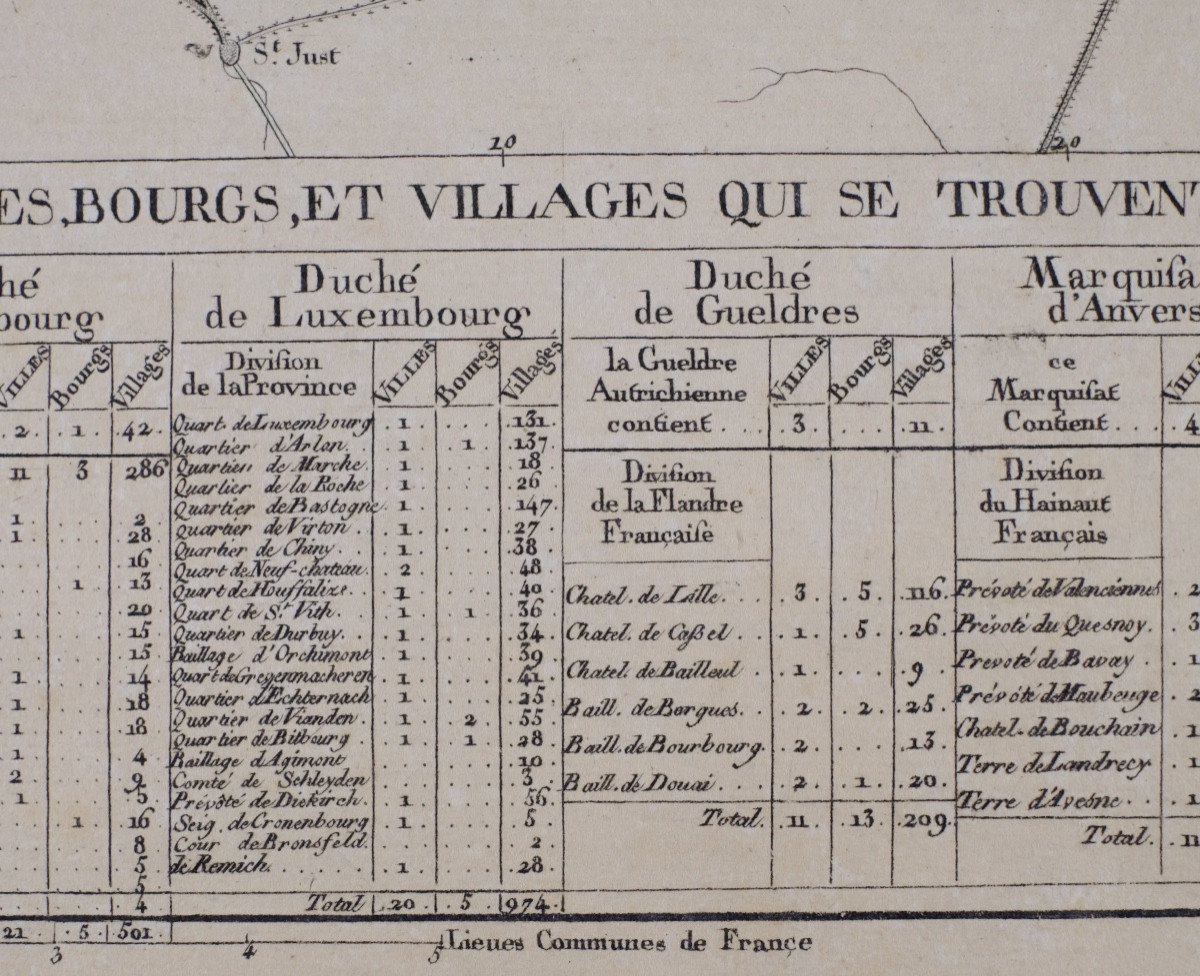 St. Just
10
20
ES, BOURGS, ET VILLAGES QUI SE TROUVENT
hé
bourg
VILLES Bourgs Villages
2. 1. 42.
11 3 286
1. 2.
1. 28
16
1 13
20
1 15
15
1 14
1 18
1 18
1 4
2 9
1 5
1 16
8
5
5
4
21 5 501
Duché
de Luxembourg
Division
de la Province
VILLES Bourgs Villages
Quart. de Luxembourg . 1 . . . . . 131.
Quartier d'Arlon. . 1 . . 1 . 137.
Quartier de Marche. . 1 . . . . . 18
Quartier de la Roche . 1 . . . . . 26
Quartier de Bastogne . 1 . . . . . 147.
Quartier de Virton . . 1 . . . . . 27
Quartier de Chiny . . . 1 . . . . . 38
Quart de Neuf-chateau. . 2 . . . . . 48
Quart de Houffalize. . . 1 . . . . . 40
Quart de St. Vith. . 1 . . 1 . 36
Quartier de Durbuy. . . 1 . . . . . 34
Baillage d'Orchimont . 1 . . . . . 39
Quart de Grevenmacheren . 1 . . . . . 41
Quartier d'Echternach . 1 . . . . . 25
Quartier de Vianden . . 1 . . 2 . 55
Quartier de Bitbourg . 1 . . 1 . 28
Baillage d'Agimont . . . . . . . 10
Comté de Schleyden . . . . . . . 3
Prévôté de Diekirch. . 1 . . . . . 56
Seig. de Cronenbourg . 1 . . . . . 5
Cour de Bronsfeld. . . . . . . . 2
de Remich. . . . . . . 1 . . . . . 28
Total 20 5 974
Duché
de Gueldres
la Gueldre
Autrichienne
contient . . .
VILLES Bourgs Villages
3. . . . 11.
Division
de la Flandre
Française
Chatel. de Lille. . . . 3 . . 5 . 116.
Chatel. de Caßel . . . . 1 . . 5 . 26.
Chatel. de Bailleul . 1 . . . . . 9
Baill. de Bergues. . . 2 . . 2 . 25
Baill. de Bourbourg. . 2 . . . . . 13.
Baill. de Douai. . . . 2 . . 1 . 20.
Total. 11. 13. 209.
Marquisa
d'Anvers
ce
Marquisat
Contient. . . .
VILL
4
Division
du Hainaut
Français
Prévoté de Valenciennes . 2
Prévoté du Quesnoy. . 3
Prevoté de Bavay . . 1
Prévôté de Maubeuge . 2
Chatel. de Bouchain . 1
Terre de Landrecy . 1
Terre d'Avesne . . . 1
Total. 11
3 4 5
Lieues Communes de France